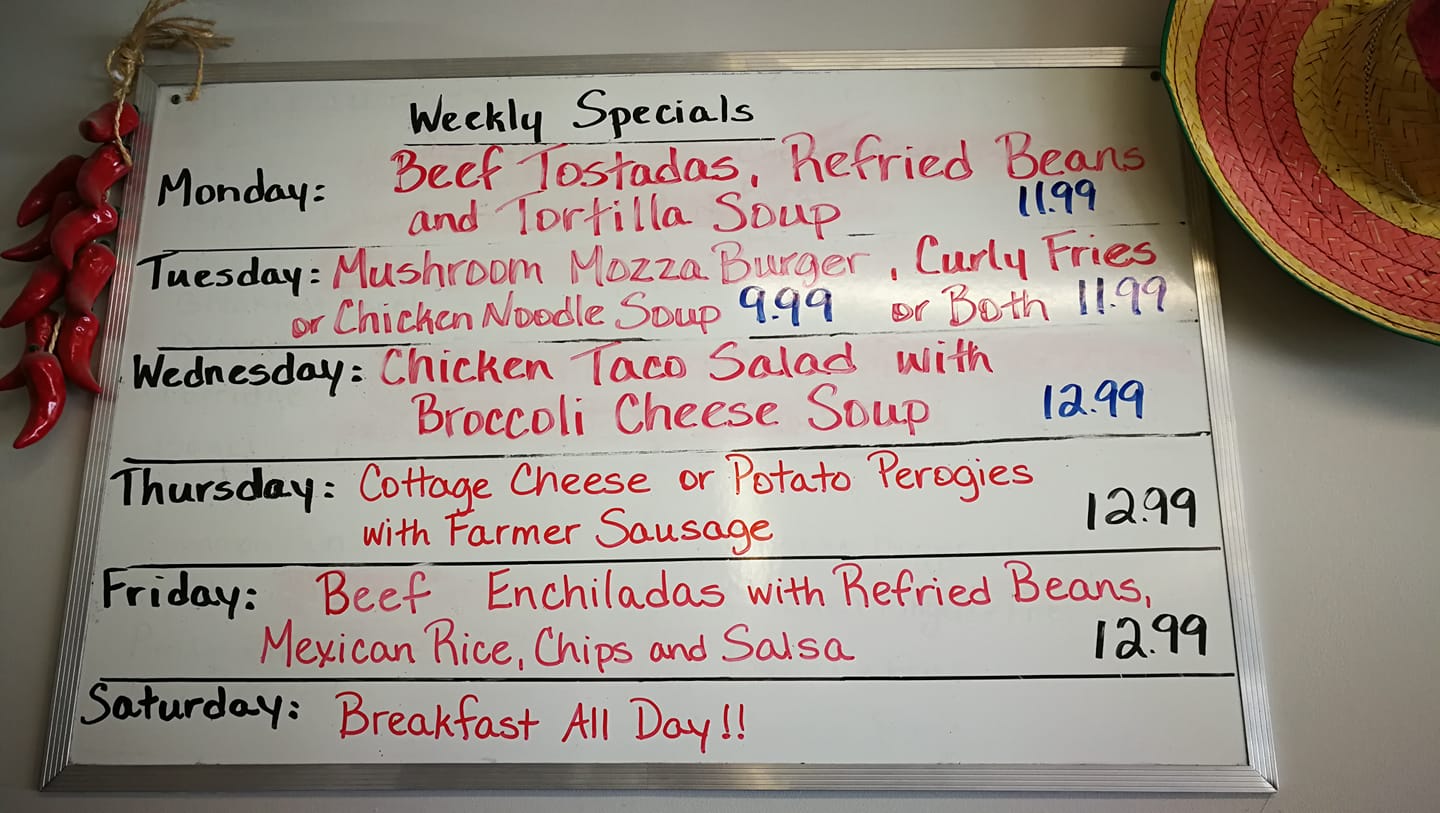 Weekly Specials
Monday: Beef Tostadas, Refried Beans
and Tortilla Soup 11.99
Tuesday: Mushroom Mozza Burger, Curly Fries
or Chicken Noodle Soup 9.99 or Both 11.99
Wednesday: Chicken Taco Salad with
Broccoli Cheese Soup 12.99
Thursday: Cottage Cheese or Potato Perogies
with Farmer Sausage 12.99
Friday: Beef Enchiladas with Refried Beans,
Mexican Rice, Chips and Salsa 12.99
Saturday: Breakfast All Day!!